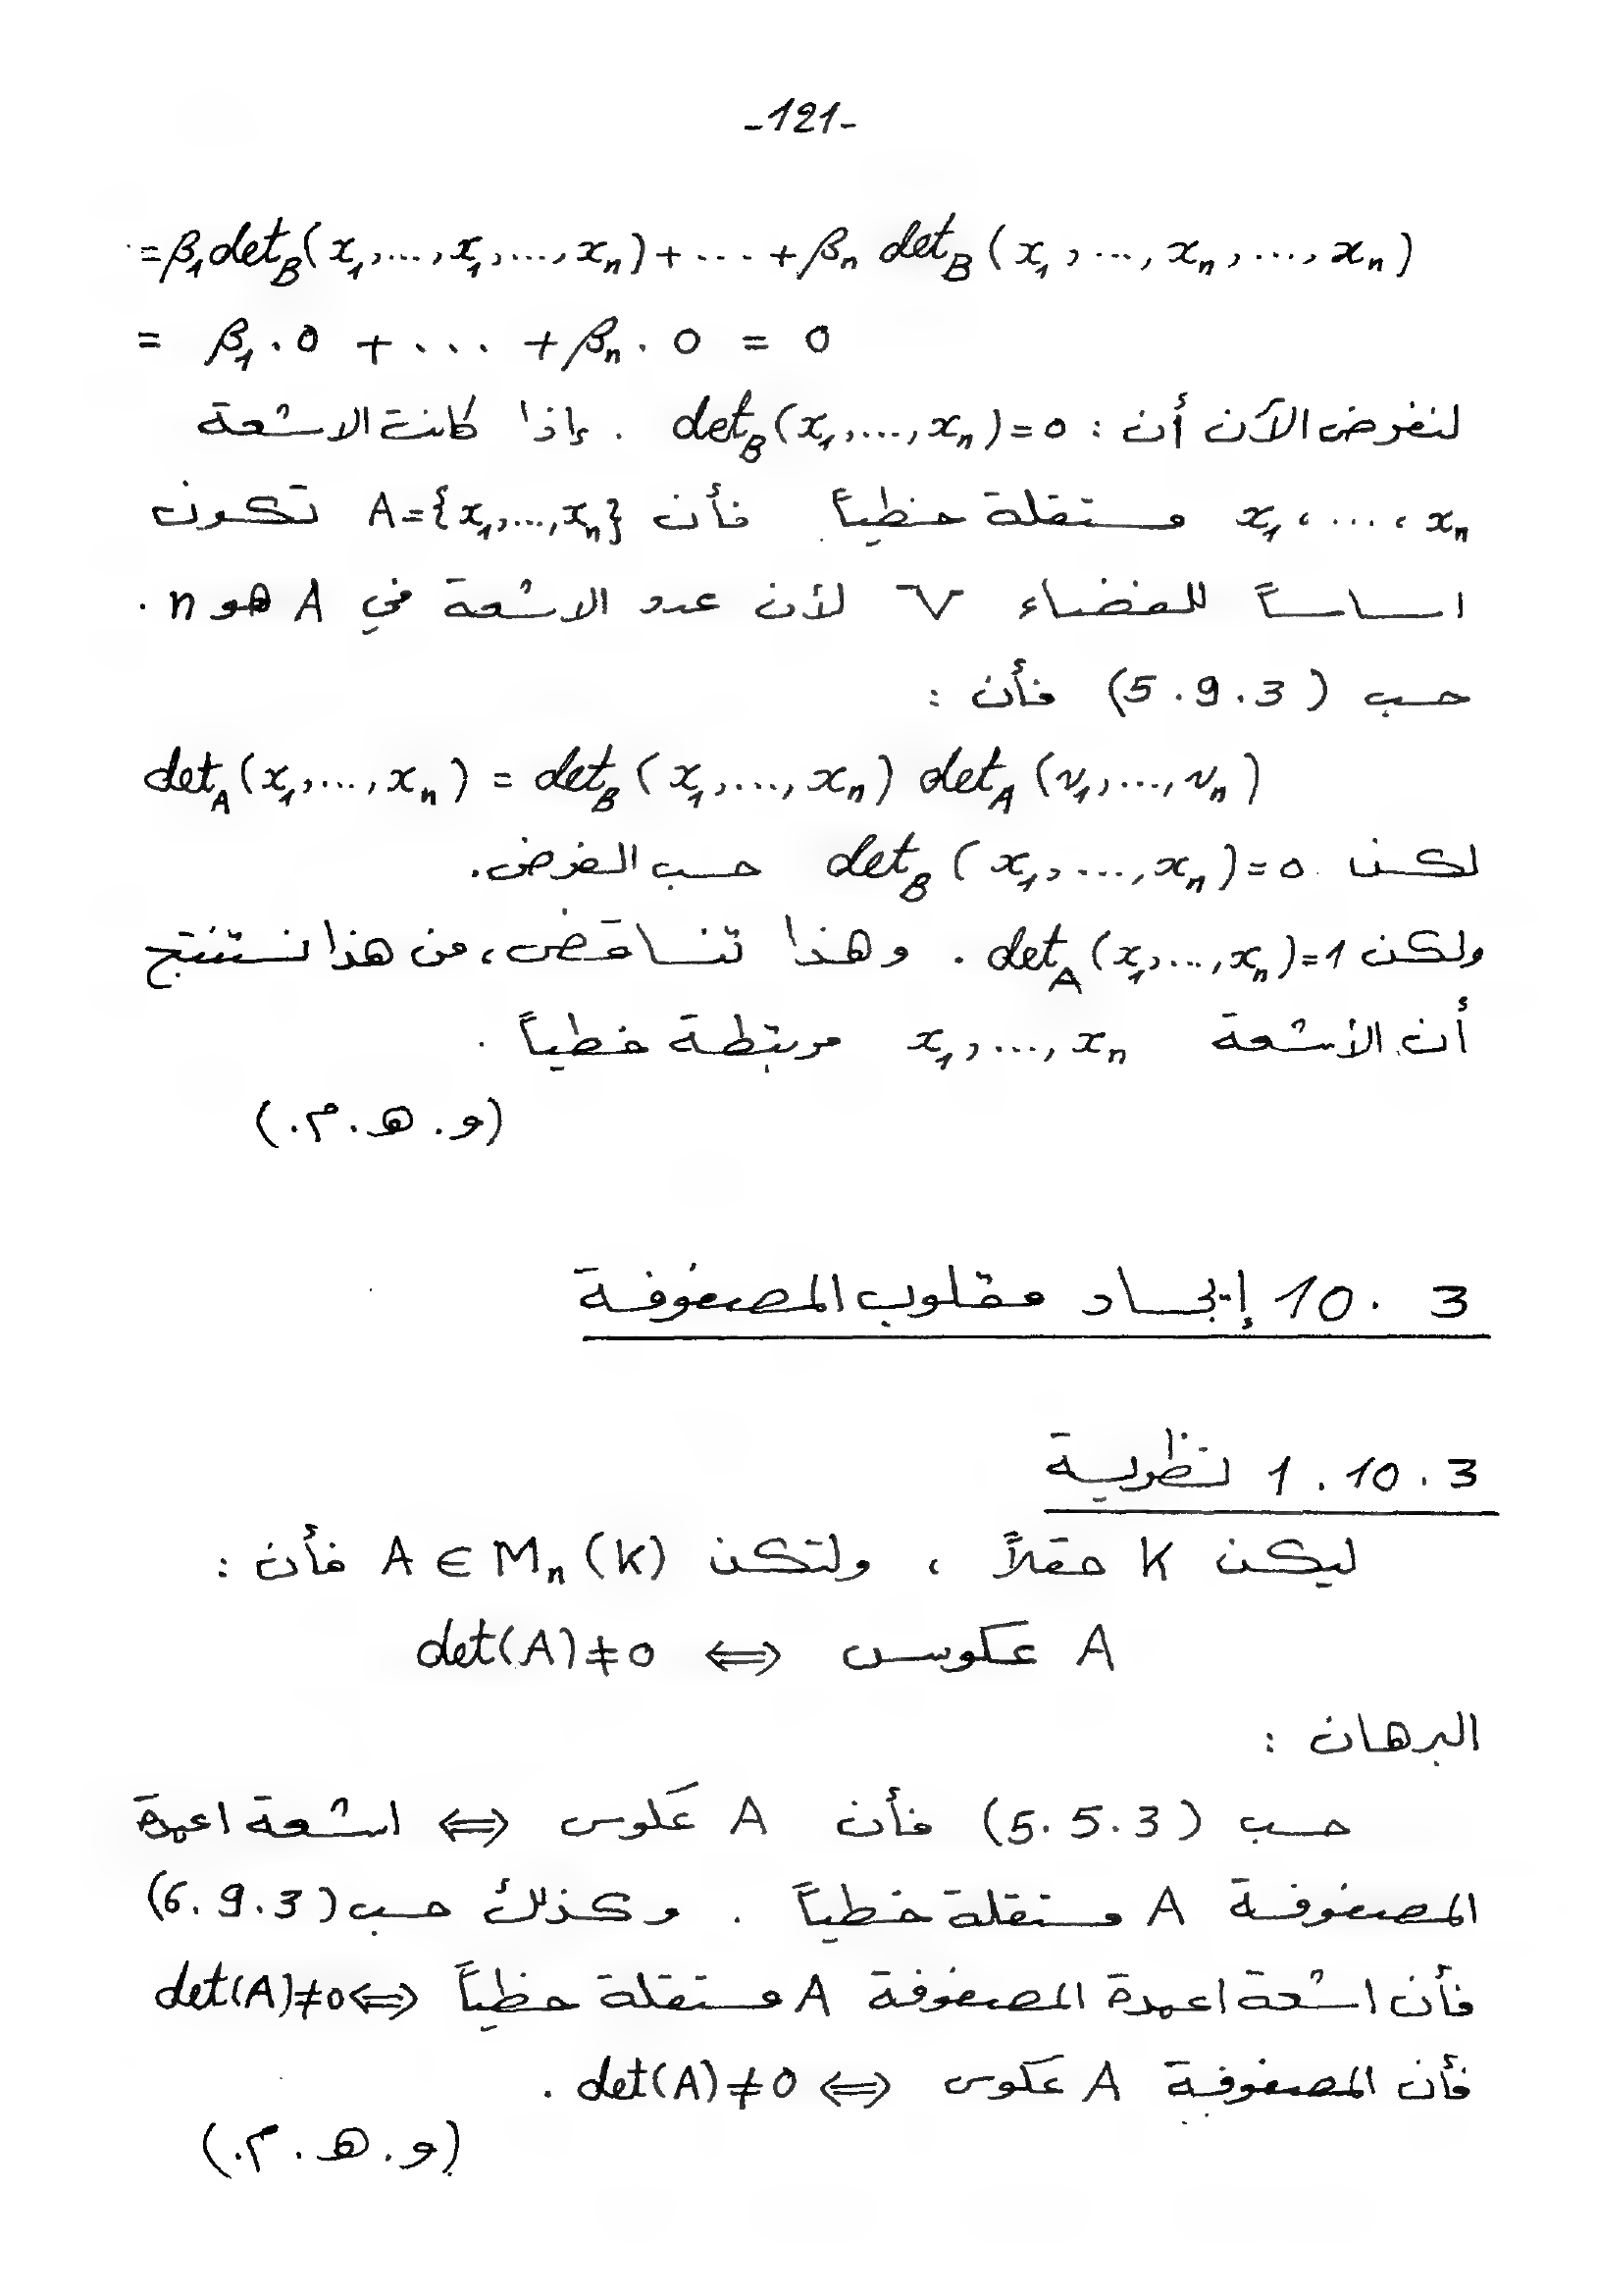 -121-
=β₁det_B(x₁,...,x₁,...,xₙ)+...+βₙ det_B(x₁,...,xₙ,...,xₙ)
= β₁.0 + ... +βₙ.0 = 0
لنفرض الآن أن : det_B(x₁,...,xₙ)=0 . وإذا كانت الاشعة
x₁،...،xₙ مستقلة خطياً فأن A={x₁,...,xₙ} تكون
اساساً للفضاء V لأن عدد الاشعة في A هو n .
حسب (5.9.3) فأن :
det_A(x₁,...,xₙ) = det_B(x₁,...,xₙ) det_A(v₁,...,vₙ)
لكن det_B(x₁,...,xₙ)=0 حسب الفرض.
ولكن det_A(x₁,...,xₙ)=1 . وهذا تناقض، من هذا نستنتج
أن الأشعة x₁,...,xₙ مرتبطة خطياً .
(و.هـ.م.)
3 .10 إيجاد مقلوب المصفوفة
3.10.1 نظرية
ليكن K حقلاً ، ولتكن A ∈ Mₙ(K) فأن :
A عكوس ⇔ det(A)≠0
البرهان :
حسب (5.5.3) فأن A عكوس ⇔ اشعة اعمدة
المصفوفة A مستقلة خطياً . وكذلك حسب (6.9.3)
فأن اشعة اعمدة المصفوفة A مستقلة خطياً ⇔ det(A)≠0
فأن المصفوفة A عكوس ⇔ det(A)≠0 .
(و.هـ.م.)